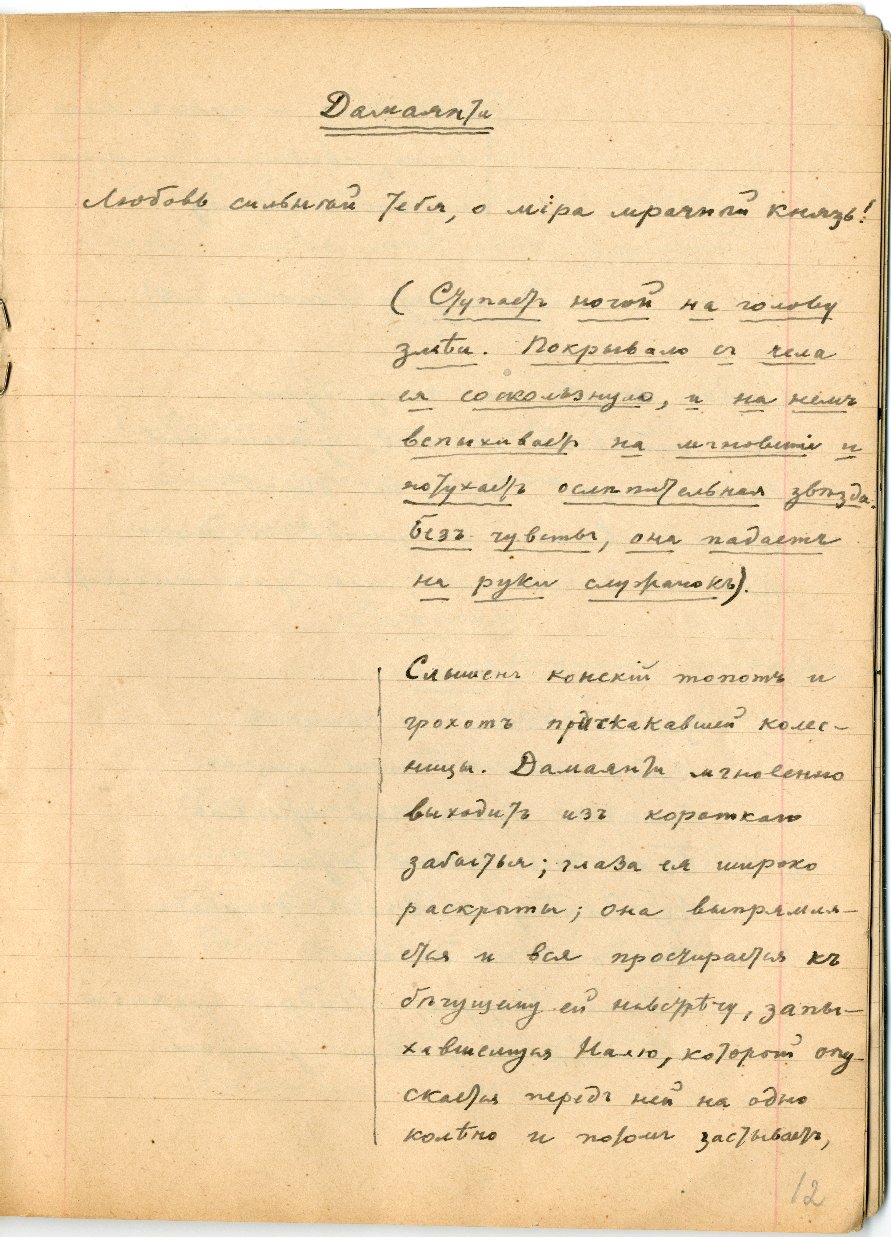 Дамаянти
Любовь сильнѣй тебя, о міра мрачный князь!
( Ступаетъ ногой на голову
змѣи. Покрывало съ чела
ея соскользнуло, и на немъ
вспыхиваетъ на мгновеніе и
потухаетъ ослѣпительная звѣзда.
Безъ чувствъ, она падаетъ
на руки служанокъ).
Слышенъ конскій топотъ и
грохотъ прискакавшей колес-
ницы. Дамаянти мгновенно
выходитъ изъ короткаго
забытья; глаза ея широко
раскрыты; она выпрямля-
ется и вся простирается къ
бѣгущему ей навстрѣчу, запы-
хавшемуся Налю, который опу-
скается передъ ней на одно
колѣно и потомъ застываетъ,
12